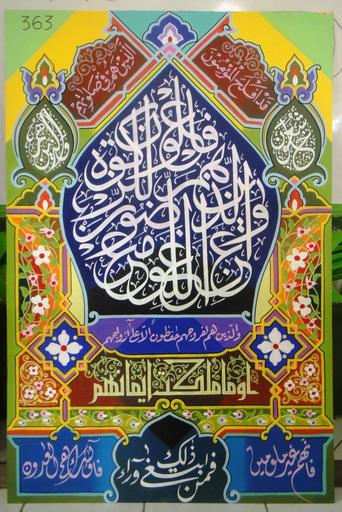 363
قد أفلح المؤمنون
الذين هم في صلاتهم
خاشعون
والذين هم
عن اللغو معرضون والذين هم للزكوة فاعلون
والذين هم لفروجهم حفظون إلا على أزواجهم
أو ما ملكت أيمانهم
فإنهم غير ملومين
فمن ابتغى وراء ذلك
فأولئك هم العدون